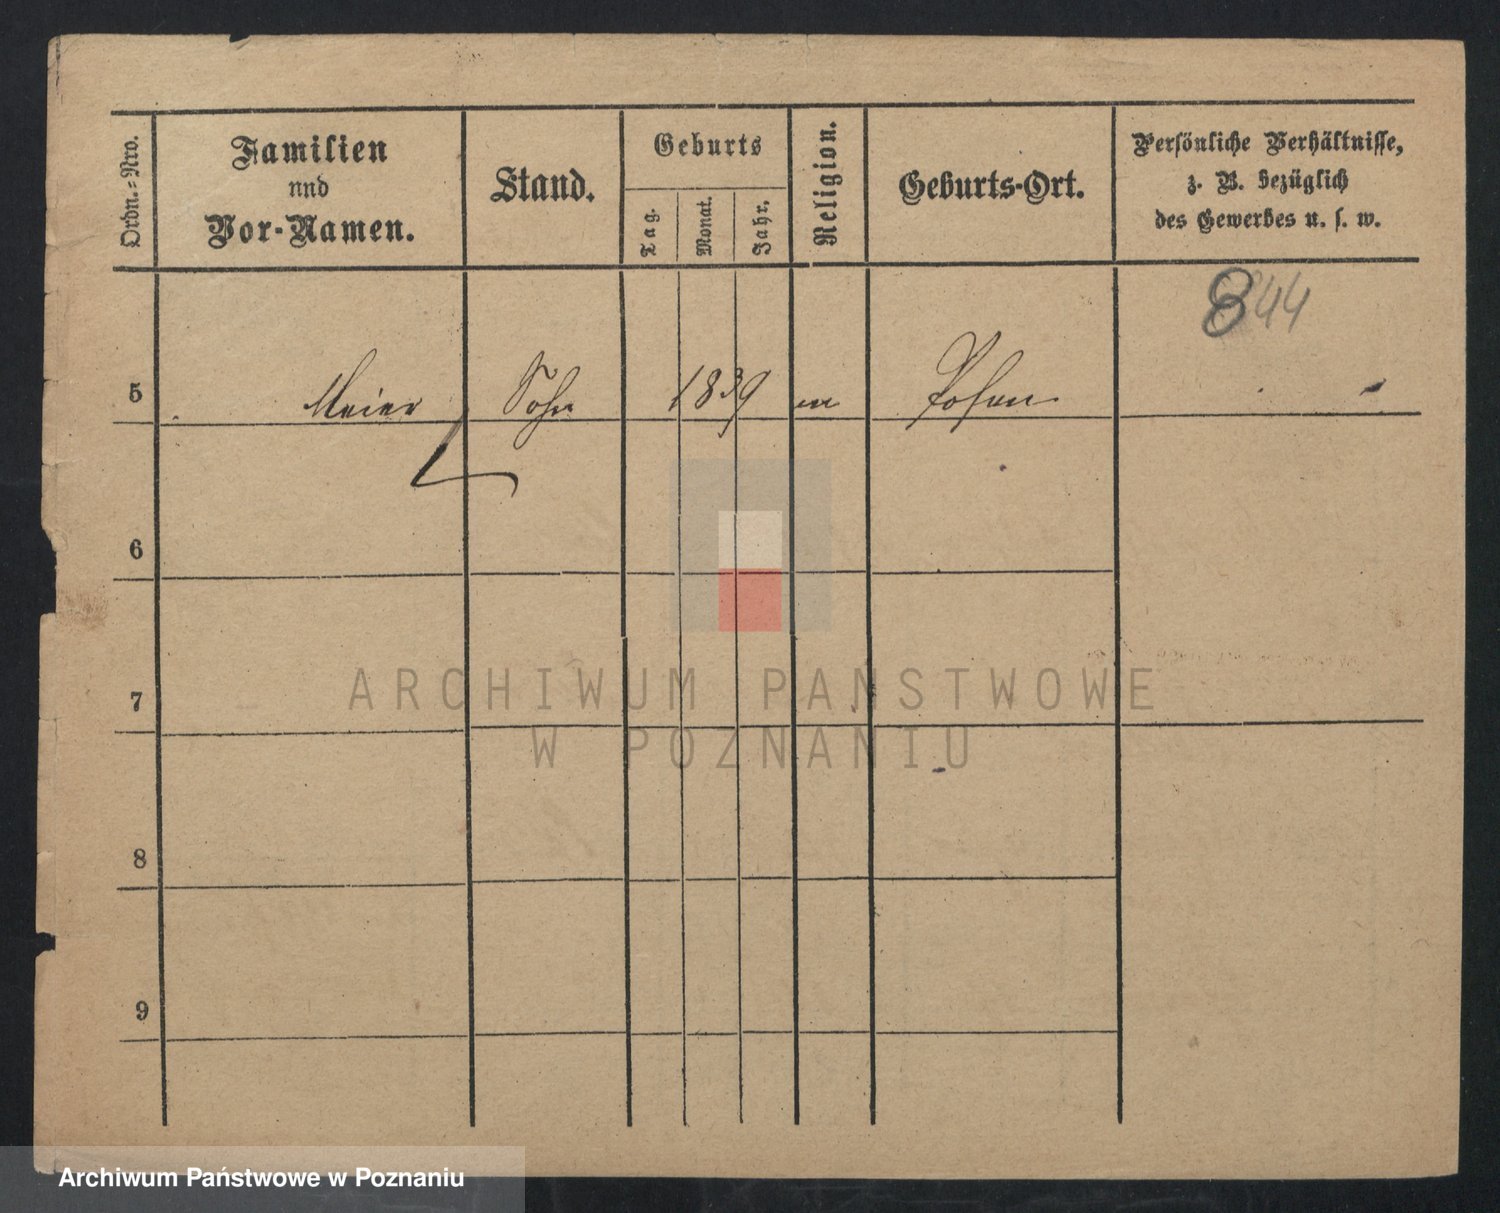 Ordn.=Nro.
Familien
und
Vor-Namen.
Stand.
Geburts
Tag.
Monat.
Jahr.
Religion.
Geburts-Ort.
Persönliche Verhältnisse,
z. B. bezüglich
des Gewerbes u. s. w.
844
5 Meier Sohn 1839 Posen
6
7
8
9
ARCHIWUM PAŃSTWOWE
W POZNANIU
Archiwum Państwowe w Poznaniu